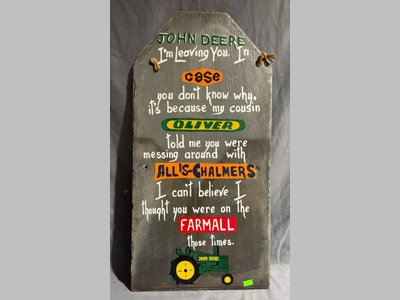 JOHN DEERE
I'm Leaving You. In
CASE
you don't know why,
it's because my cousin
OLIVER
told me you were
messing around with
ALLIS-CHALMERS
I can't believe I
thought you were on the
FARMALL
those times.
JOHN DEERE